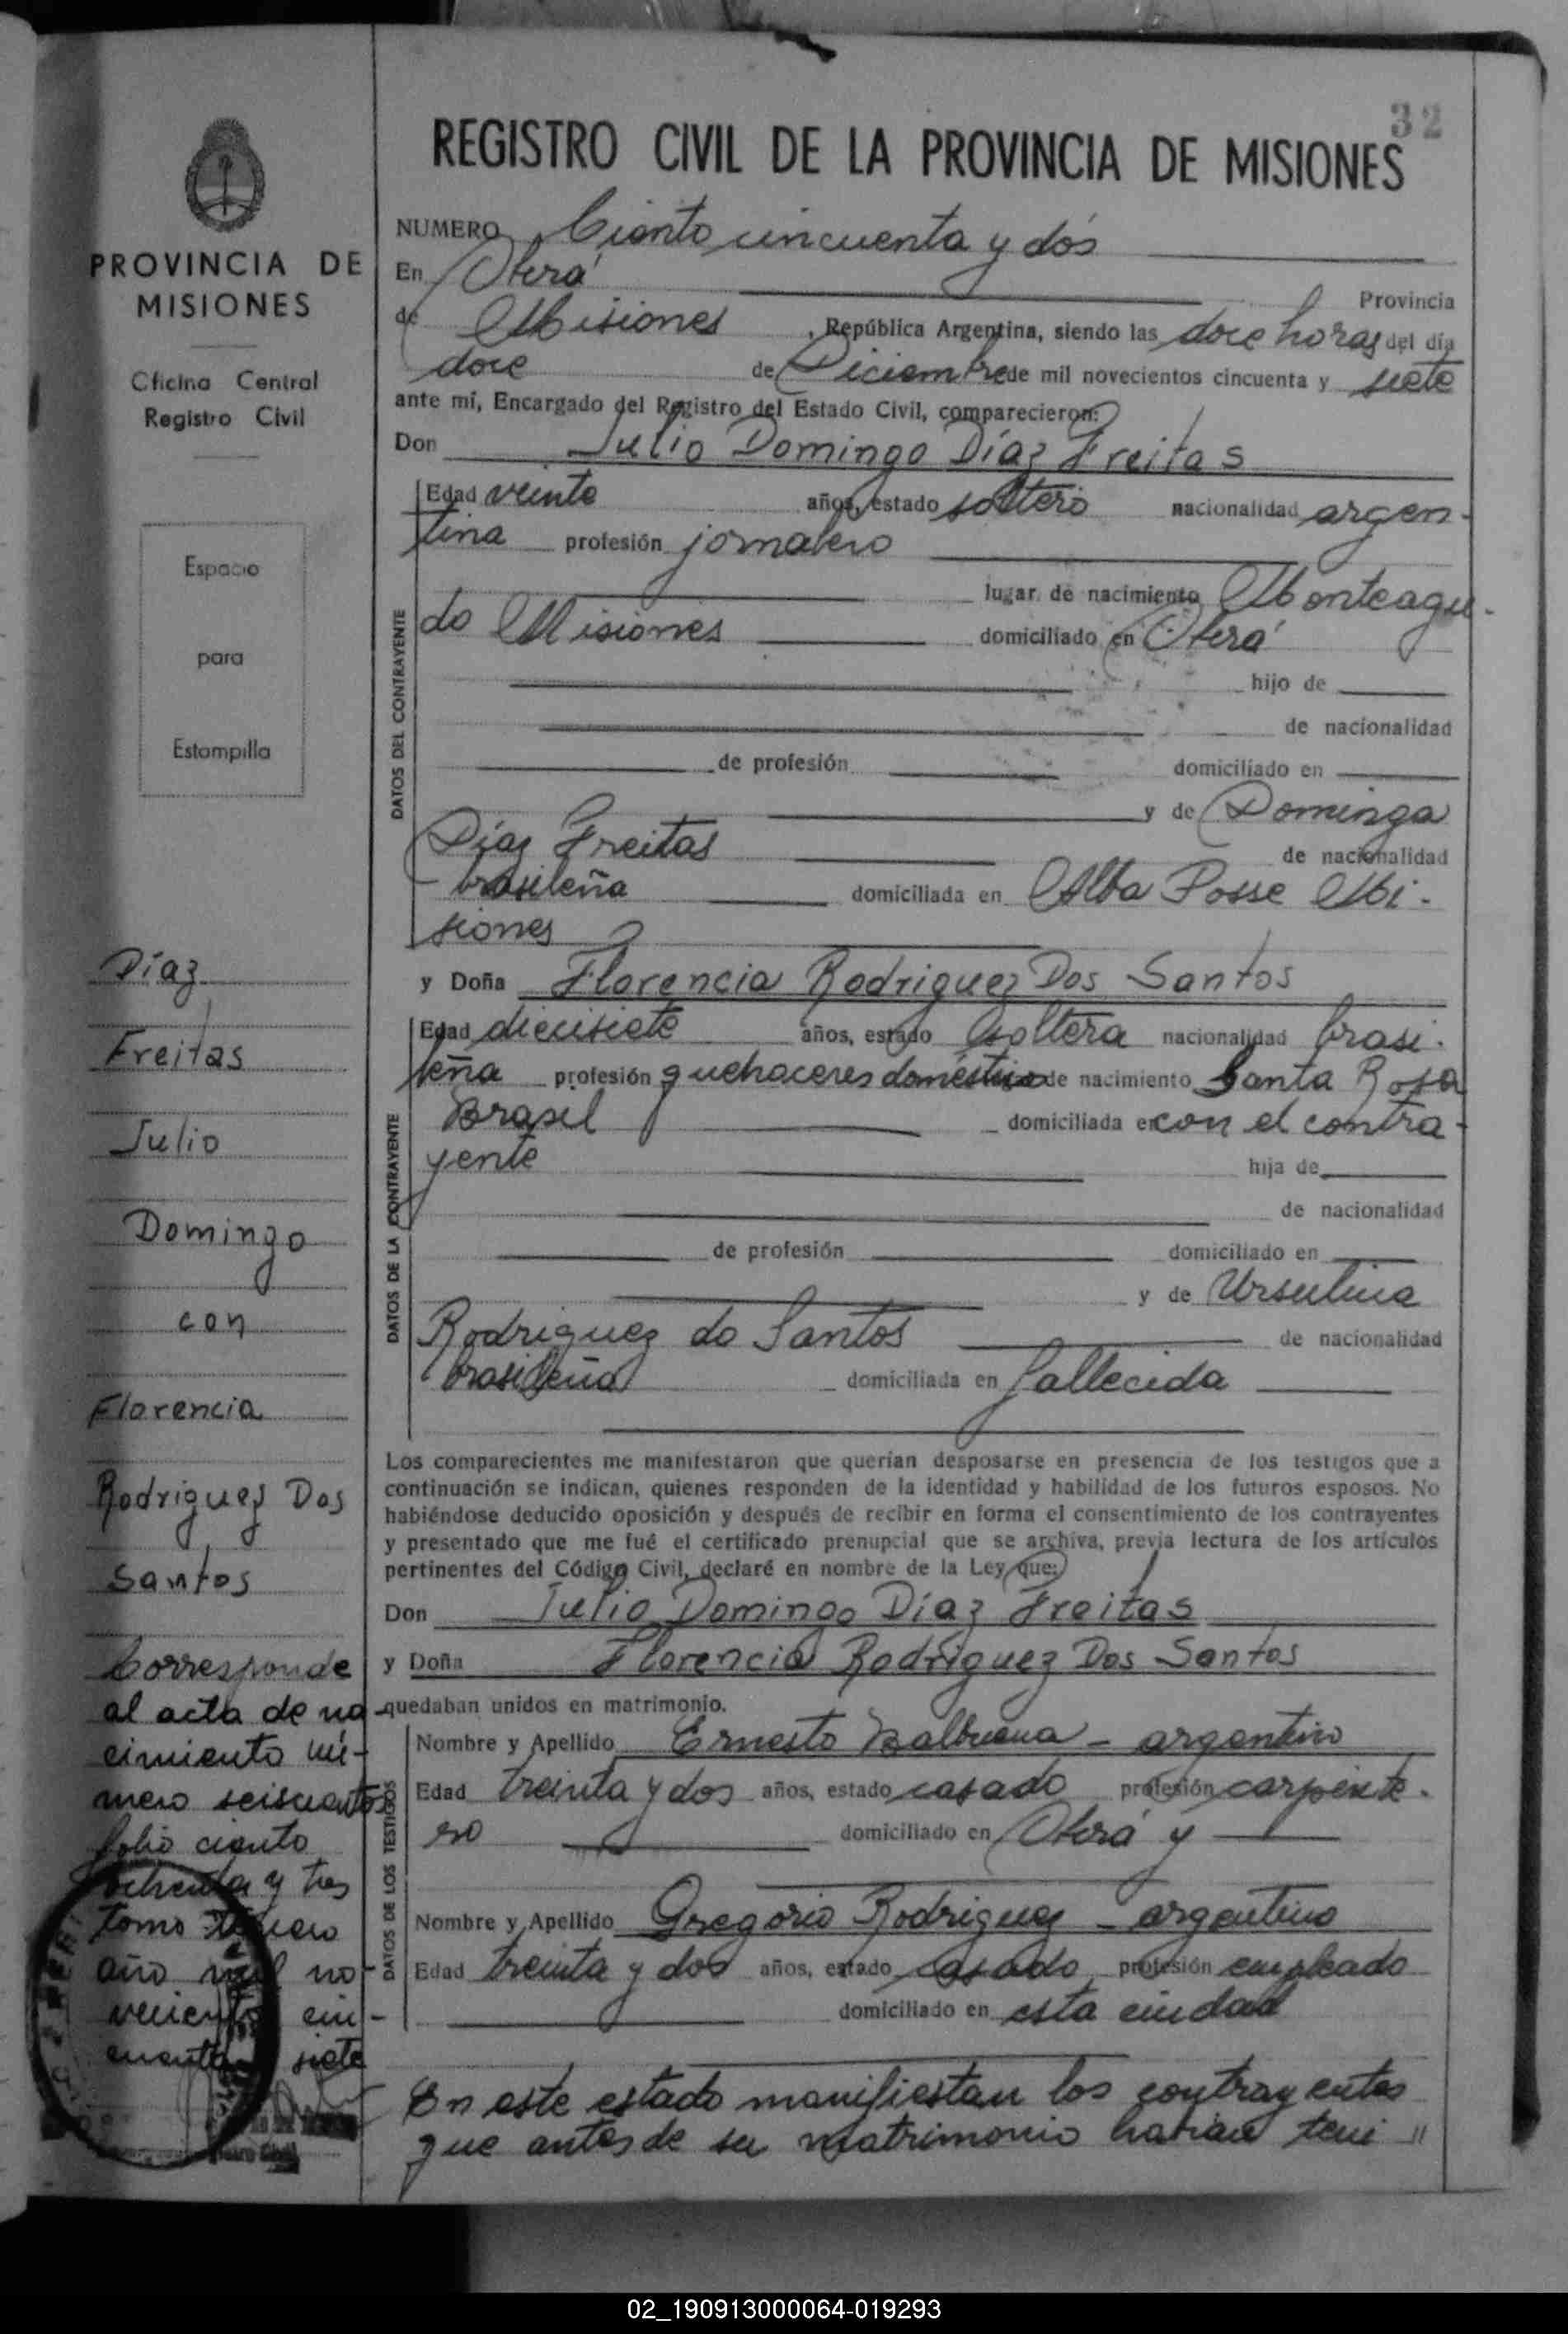 32
REGISTRO CIVIL DE LA PROVINCIA DE MISIONES
PROVINCIA DE
MISIONES
Oficina Central
Registro Civil
Espacio
para
Estampilla
Díaz
Freitas
Julio
Domingo
con
Florencia
Rodriguez Dos
Santos
Corresponde
al acta de na-
cimiento nú-
mero seiscientos
folio ciento
ochenta y tres
tomo tercero
año mil no-
vecientos cin-
cuenta siete
NUMERO Ciento cincuenta y dós
En Oberá Provincia
de Misiones, República Argentina, siendo las doce horas del día
doce de Diciembre de mil novecientos cincuenta y siete
ante mí, Encargado del Registro del Estado Civil, comparecieron:
Don Julio Domingo Díaz Freitas
DATOS DEL CONTRAYENTE
Edad veinte años, estado soltero nacionalidad argen-
tina profesión jornalero
lugar de nacimiento Monteagu-
do Misiones domiciliado en Oberá
hijo de
de nacionalidad
de profesión domiciliado en
y de Dominga
Díaz Freitas de nacionalidad
brasileña domiciliada en Alba Posse Mi-
siones
y Doña Florencia Rodriguez Dos Santos
DATOS DE LA CONTRAYENTE
Edad diecisiete años, estado soltera nacionalidad brasi-
leña profesión quehaceres domésticos de nacimiento Santa Rosa
Brasil domiciliada en con el contra-
yente hija de
de nacionalidad
de profesión domiciliado en
y de Ursulina
Rodriguez do Santos de nacionalidad
brasileña domiciliada en fallecida
Los comparecientes me manifestaron que querían desposarse en presencia de los testigos que a
continuación se indican, quienes responden de la identidad y habilidad de los futuros esposos. No
habiéndose deducido oposición y después de recibir en forma el consentimiento de los contrayentes
y presentado que me fué el certificado prenupcial que se archiva, previa lectura de los artículos
pertinentes del Código Civil, declaré en nombre de la Ley que:
Don Julio Domingo Díaz Freitas
y Doña Florencia Rodriguez Dos Santos
quedaban unidos en matrimonio.
DATOS DE LOS TESTIGOS
Nombre y Apellido Ernesto Balbuena - argentino
Edad treinta y dos años, estado casado profesión carpinte-
ro domiciliado en Oberá y
Nombre y Apellido Gregorio Rodriguez - argentino
Edad treinta y dos años, estado casado profesión empleado
domiciliado en esta ciudad
En este estado manifiestan los contrayentes
que antes de su matrimonio habían teni "
02_190913000064-019293